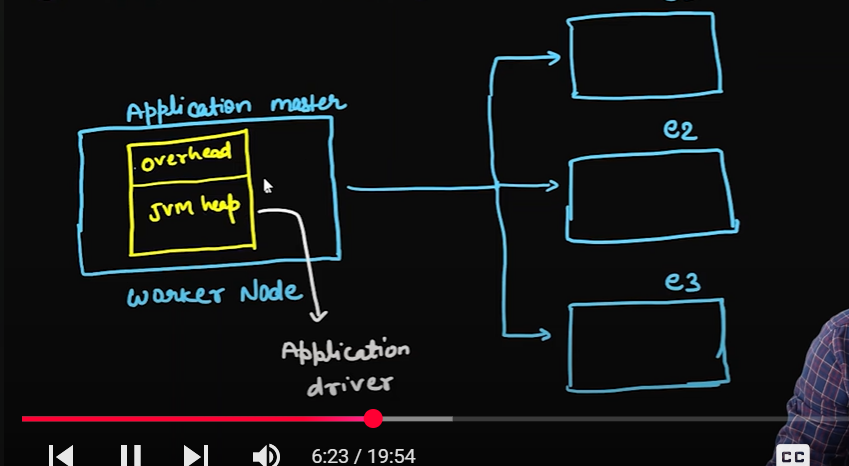 Application master
overhead
JVM heap
Worker Node
Application
driver
e2
e3
6:23 / 19:54
CC